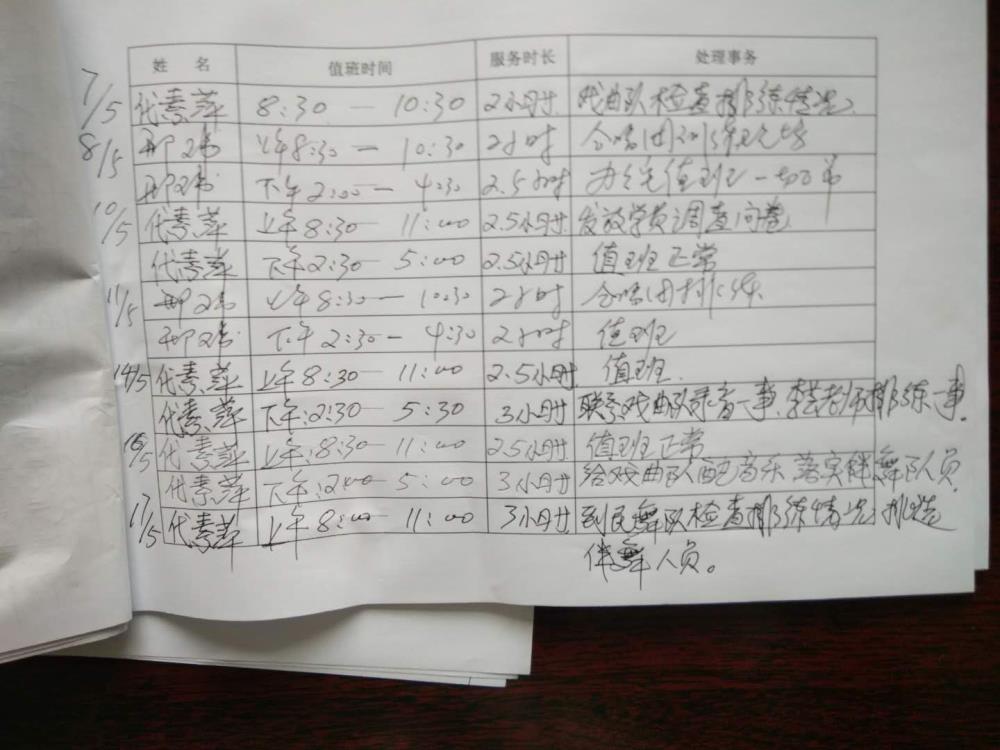 姓 名 值班时间 服务时长 处理事务
7/5 代素萍 8:30 — 10:30 2小时 戏曲队检查排练情况
8/5 上午8:30 — 10:30 2小时 合唱团
下午2:00 — 4:30 2.5小时 值班
10/5 代素萍 上午8:30 11:00 2.5小时 发放学员调查问卷
代素萍 下午2:30 5:00 2.5小时 值班正常
11/5 上午8:30 — 10:30 2小时 合唱团排练
下午2:30 — 4:30 2小时 值班
14/5 代素萍 上午8:30 11:00 2.5小时 值班
代素萍 下午:2:30 5:30 3小时 联系戏曲队录音一事、老师排练一事.
16/5 代素萍 上午:8:30 11:00 2.5小时 值班正常
代素萍 下午:2:00 5:00 3小时 给戏曲队配音乐 落实伴舞队人员
17/5 代素萍 上午8:00 11:00 3小时 到民舞队检查排练情况 挑选
伴舞人员。